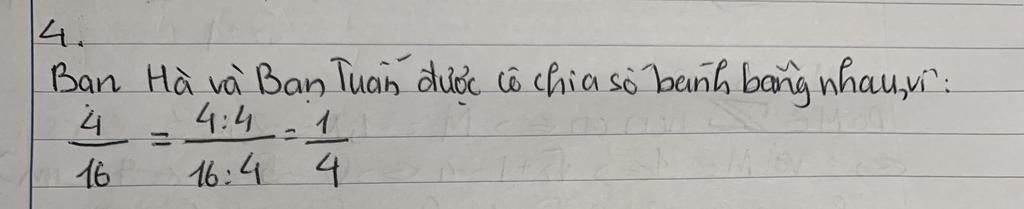 4.
Bạn Hà và Bạn Tuấn được cô chia số bánh bằng nhau, vì:
4/16 = 4:4/16:4 = 1/4